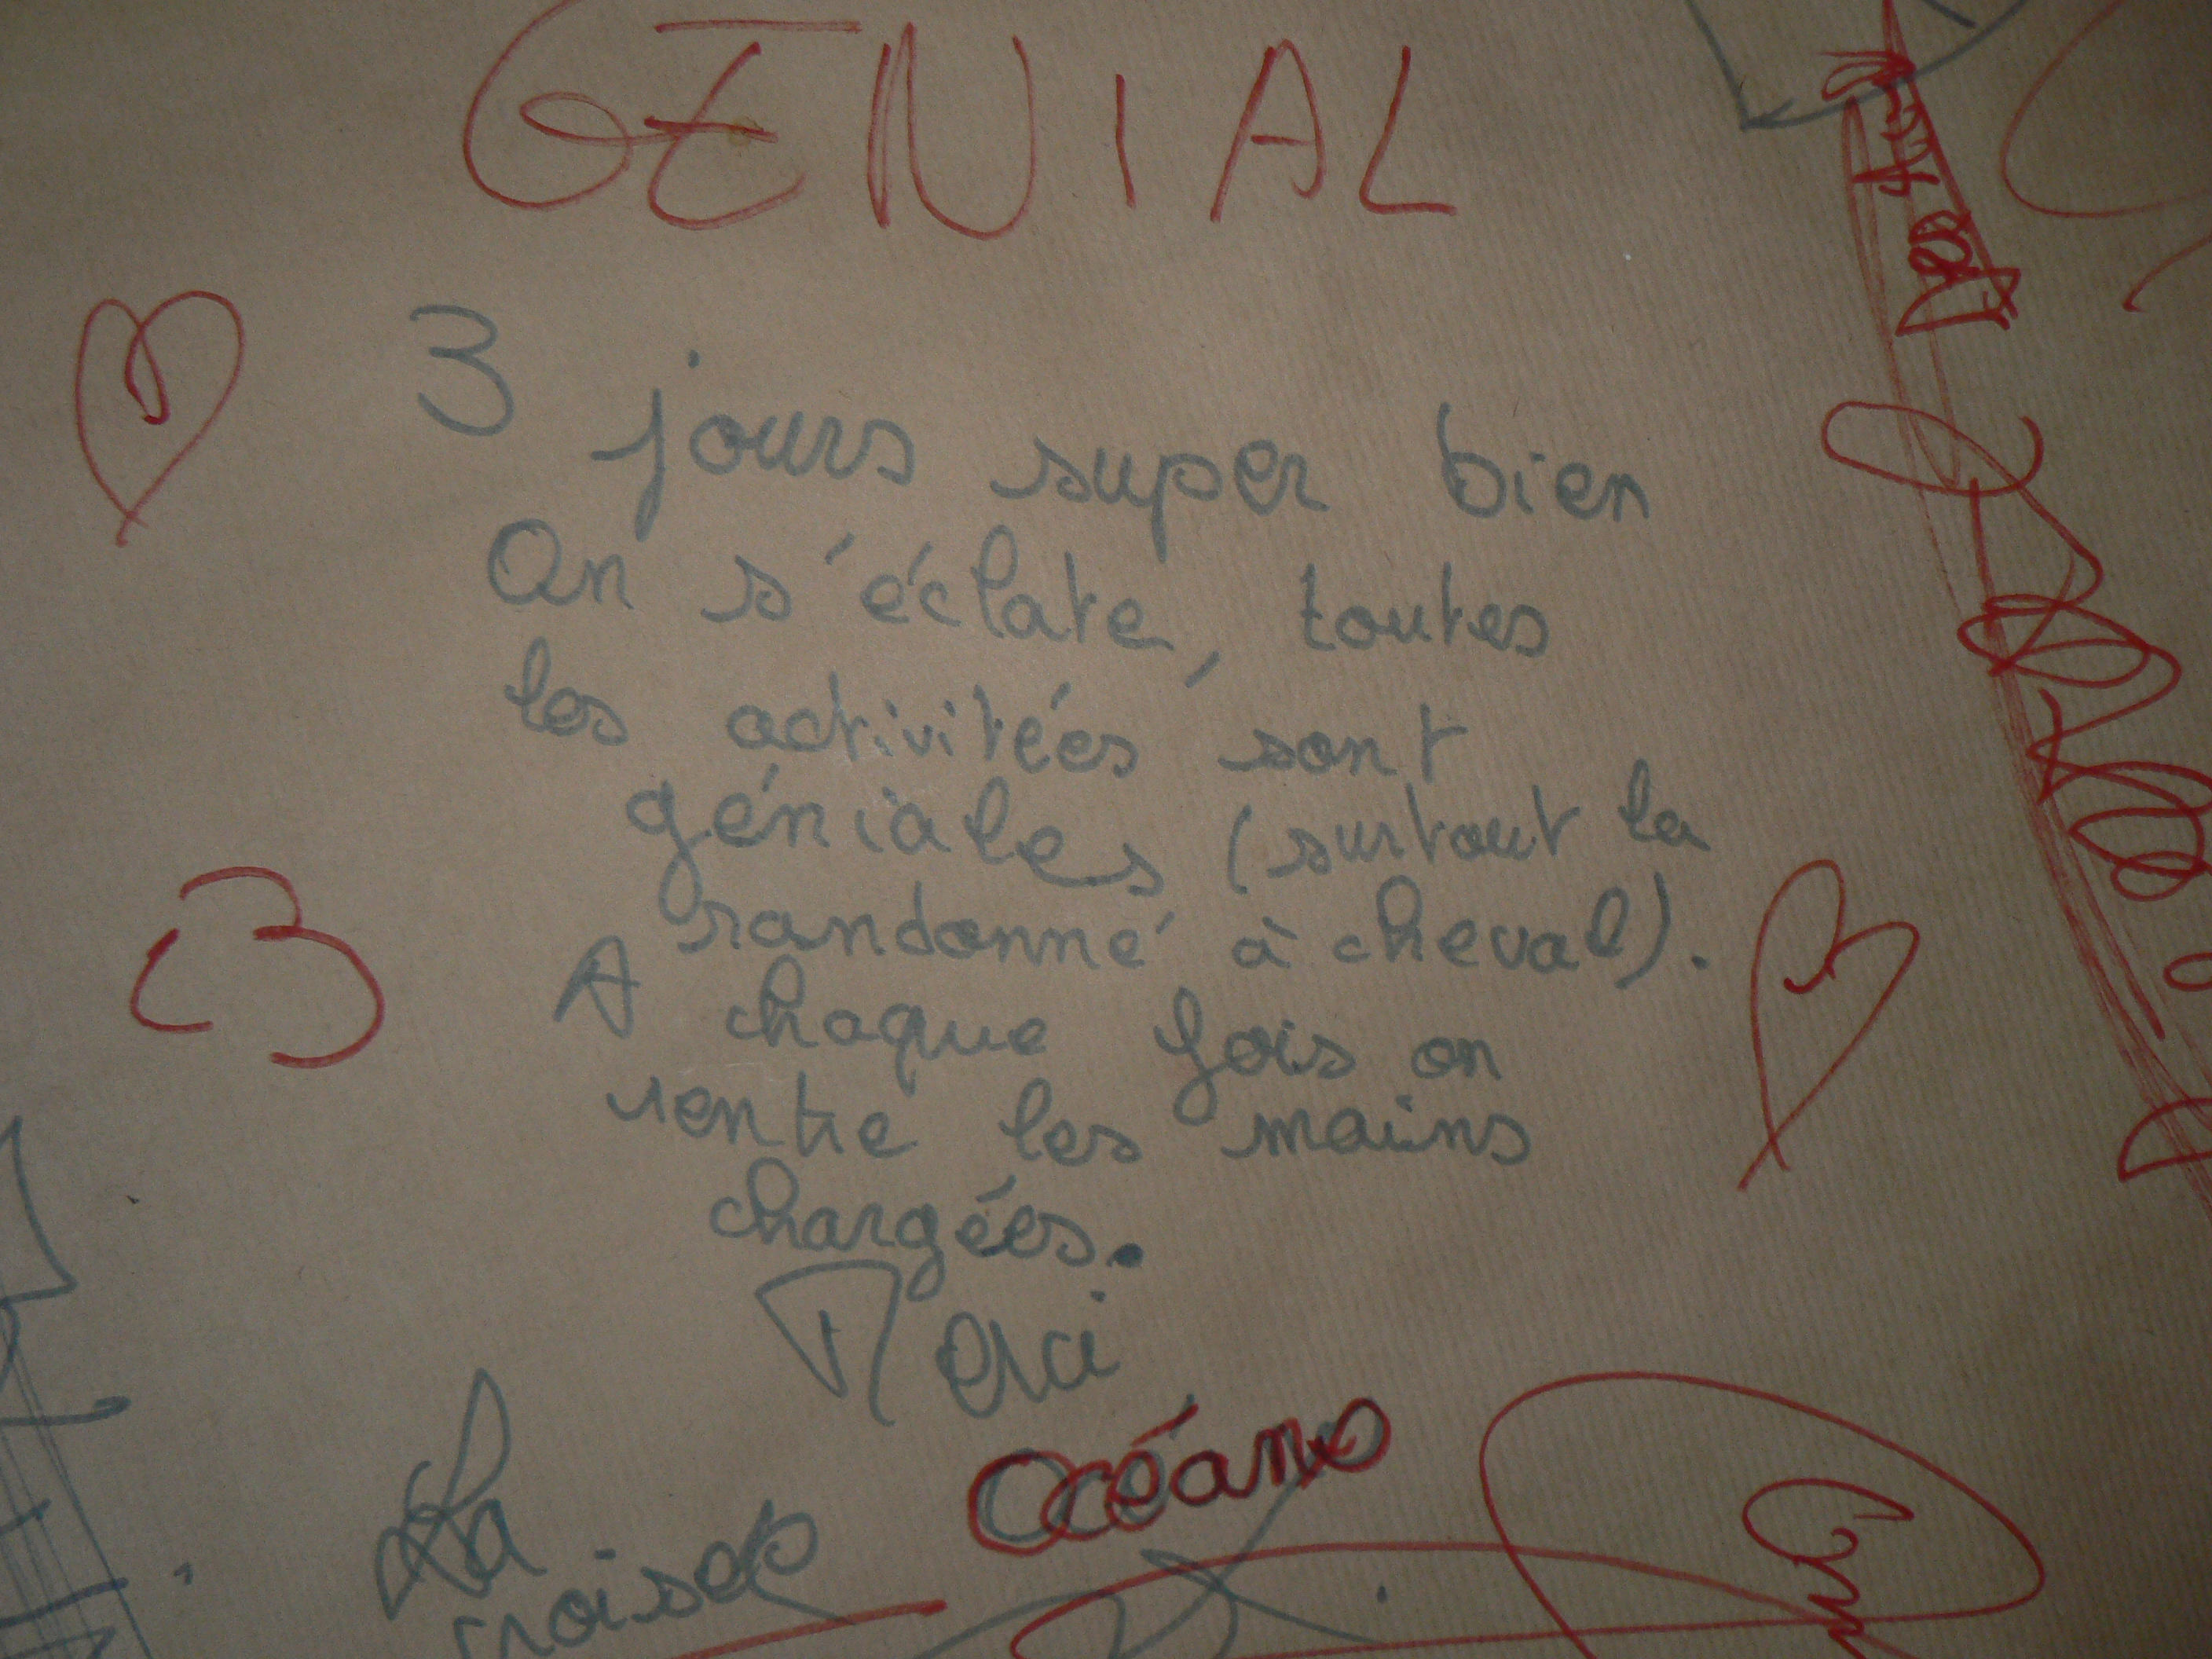 GENIAL
3 jours super bien
On s'éclate, toutes
les activitées sont
géniales (surtout la
randonné à cheval).
A chaque fois on
rentre les mains
chargées.
Merci
Océane
La